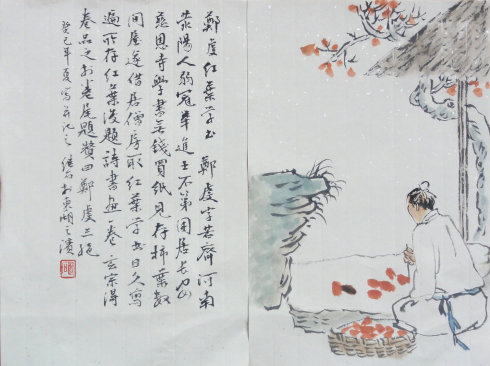 鄭虔紅葉學書 鄭虔字若齊河南
滎陽人弱冠舉進士不第困居長安
慈恩寺學書無錢買紙見存柿葉數
間屋遂借居僧房取紅葉學書日久寫
遍所存紅葉後題詩書畫一卷玄宗得
卷品之於卷尾題贊曰鄭虔三絕
癸巳年夏寫並記之 於東湖之濱